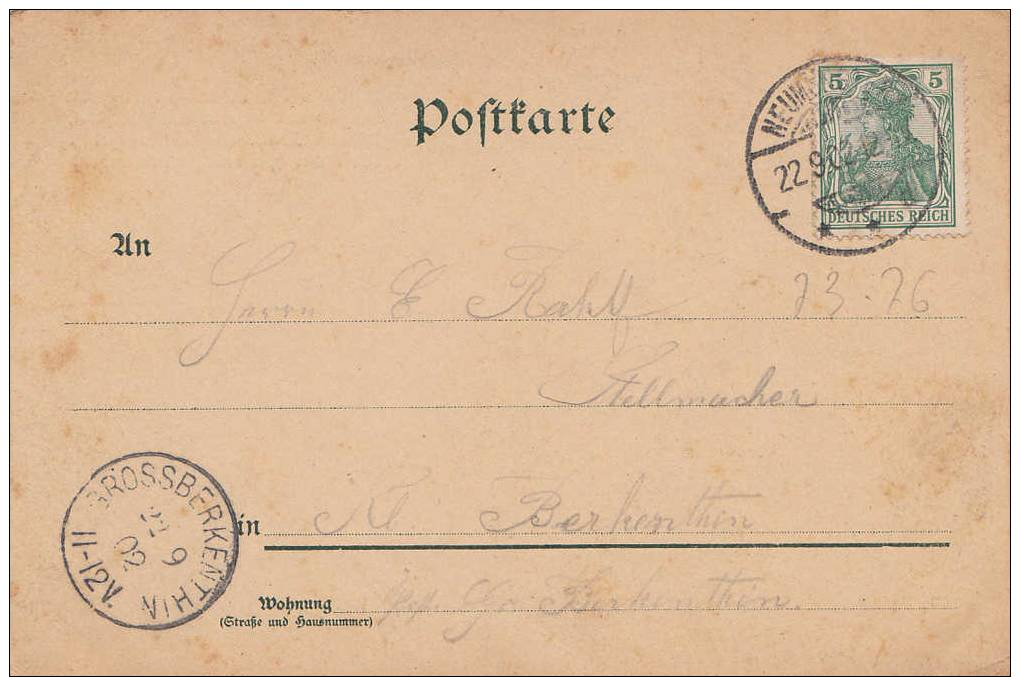 Postkarte
5 5
DEUTSCHES REICH
22.9.02
An
Herrn E Rahlf
73.76
Stellmacher
GROSSBERKENTHIN
22 9
02
11-12V.
in Kl. Berkenthin
Wohnung Gr. Berkenthin.
(Straße und Hausnummer)